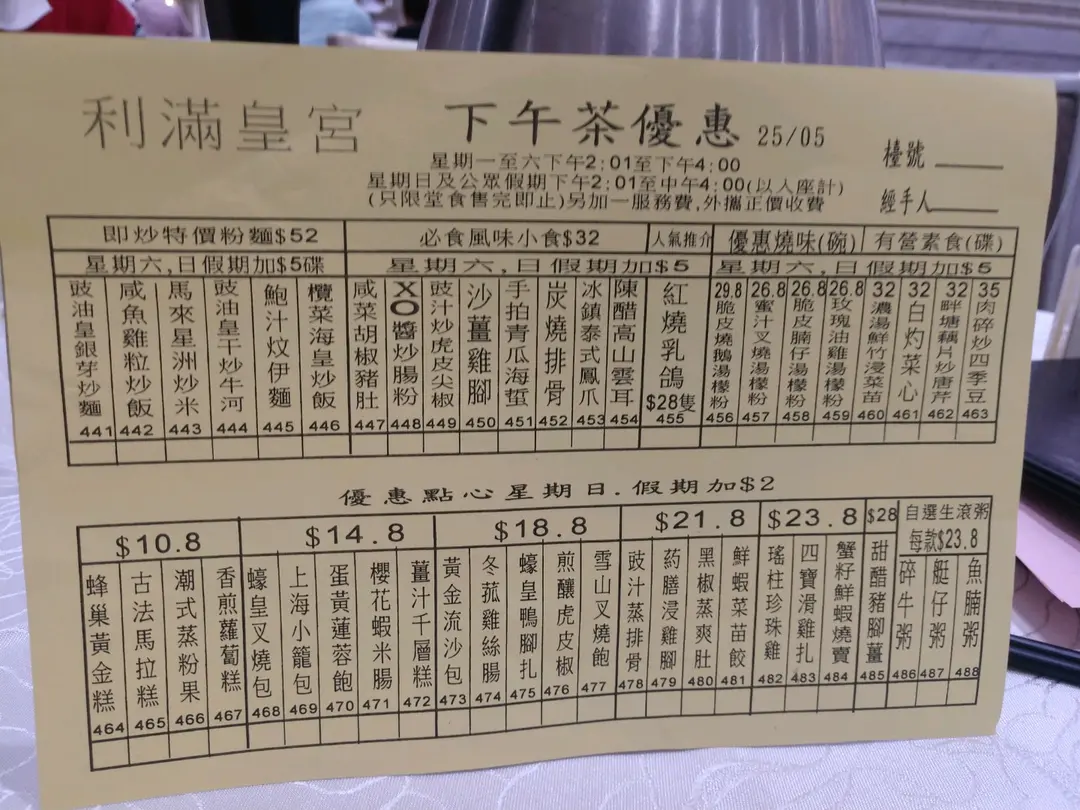 利滿皇宮
下午茶優惠 25/05
檯號
星期一至六下午2:01至下午4:00
星期日及公眾假期下午2:01至中午4:00(以入座計)
(只限堂食售完即止)另加一服務費,外攜正價收費
經手人
即炒特價粉麵$52
必食風味小食$32
人氣推介
優惠燒味(碗)
有營素食(碟)
星期六,日假期加$5碟
星期六,日假期加$5
星期六,日假期加$5
豉油皇銀芽炒麵 441
咸魚雞粒炒飯 442
馬來星洲炒米 443
豉油皇干炒牛河 444
鮑汁炆伊麵 445
欖菜海皇炒飯 446
咸菜胡椒豬肚 447
XO醬炒腸粉 448
豉汁炒虎皮尖椒 449
沙薑雞腳 450
手拍青瓜海蜇 451
炭燒排骨 452
冰鎮泰式鳳爪 453
陳醋高山雲耳 454
紅燒乳鴿 $28隻 455
29.8 脆皮燒鵝湯檬粉 456
26.8 蜜汁叉燒湯檬粉 457
26.8 脆皮腩仔湯檬粉 458
26.8 玫瑰油雞湯檬粉 459
32 濃湯鮮竹浸菜苗 460
32 白灼菜心 461
32 畔塘藕片炒唐芹 462
35 肉碎炒四季豆 463
優惠點心星期日.假期加$2
$10.8
$14.8
$18.8
$21.8
$23.8
$28
自選生滾粥
每款$23.8
蜂巢黃金糕 464
古法馬拉糕 465
潮式蒸粉果 466
香煎蘿蔔糕 467
蠔皇叉燒包 468
上海小籠包 469
蛋黃蓮蓉飽 470
櫻花蝦米腸 471
薑汁千層糕 472
黃金流沙包 473
冬菰雞絲腸 474
蠔皇鴨腳扎 475
煎釀虎皮椒 476
雪山叉燒飽 477
豉汁蒸排骨 478
药膳浸雞腳 479
黑椒蒸爽肚 480
鮮蝦菜苗餃 481
瑤柱珍珠雞 482
四寶滑雞扎 483
蟹籽鮮蝦燒賣 484
甜醋豬腳薑 485
碎牛粥 486
艇仔粥 487
魚腩粥 488